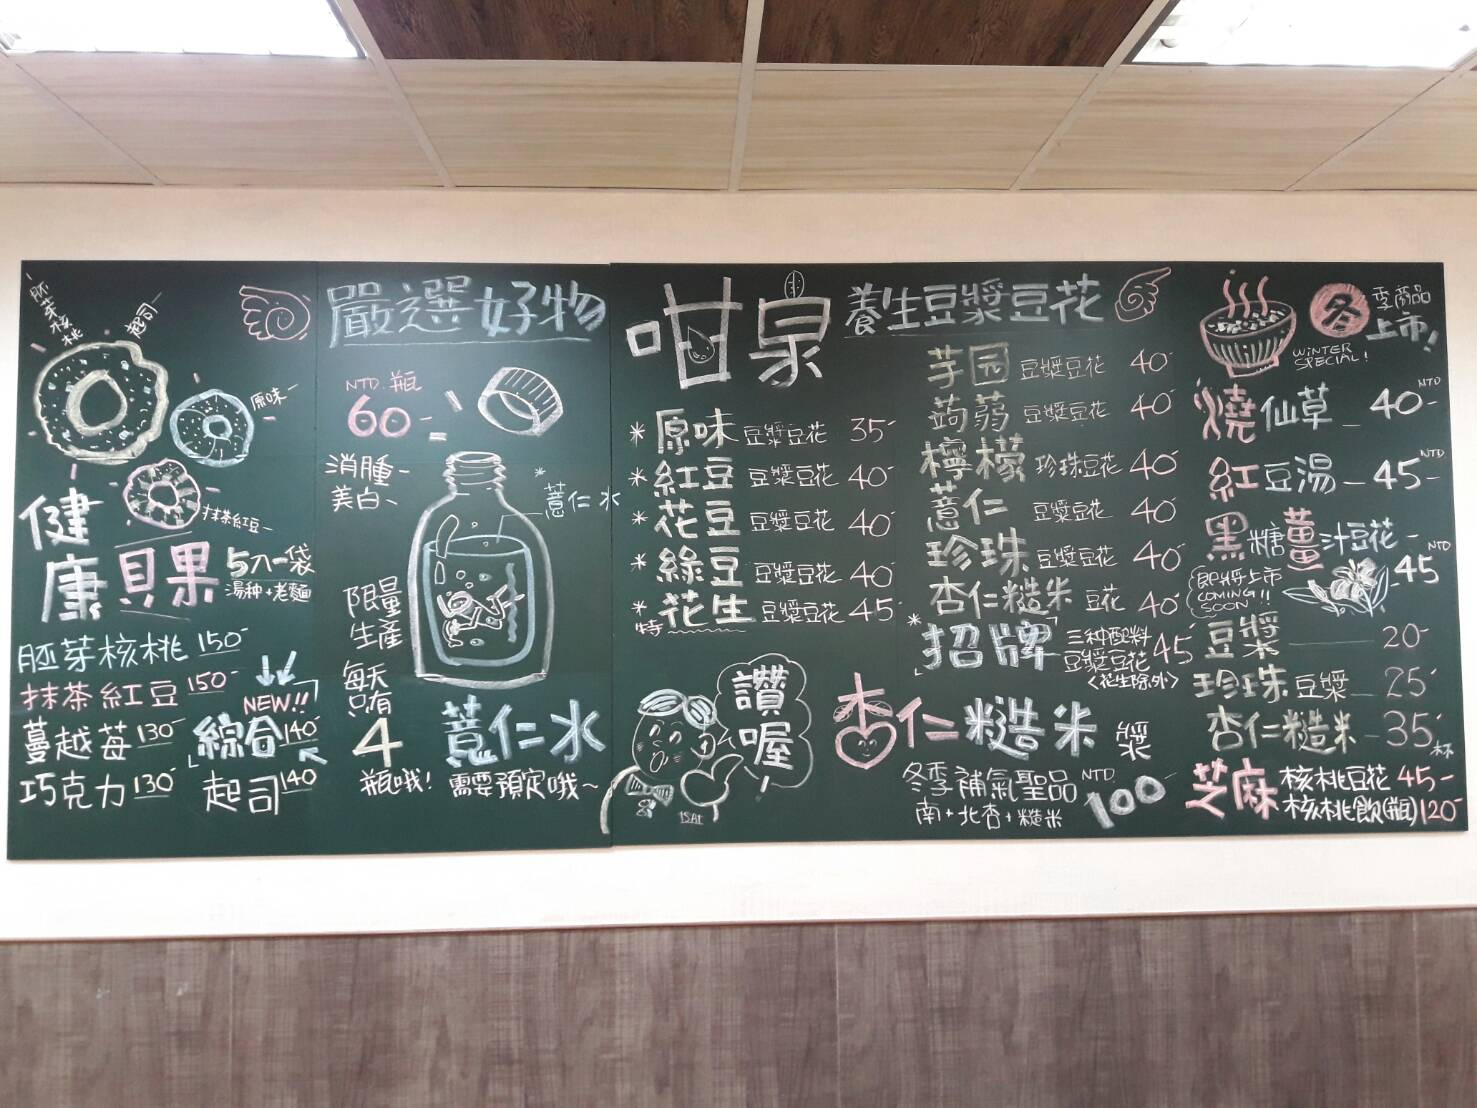 胚芽核桃
起司
原味
抹茶紅豆
健康貝果
5入一袋
湯种+老麵
胚芽核桃 150
抹茶紅豆 150
蔓越莓 130
巧克力 130
NEW!!
綜合 140
起司 140
嚴選好物
NTD. 瓶
60
消腫
美白
*薏仁水
限量
生產
每天
只有
4
瓶哦!
薏仁水
需要預定哦~
咁泉
養生豆漿豆花
*原味豆漿豆花 35
*紅豆豆漿豆花 40
*花豆豆漿豆花 40
*綠豆豆漿豆花 40
*特 花生豆漿豆花 45
芋园豆漿豆花 40
蒟蒻豆漿豆花 40
檸檬珍珠豆花 40
薏仁豆漿豆花 40
珍珠豆漿豆花 40
杏仁糙米豆花 40
*「招牌」三种配料
豆漿豆花 45
<花生除外>
讚喔!
杏仁糙米漿
冬季補氣聖品
南+北杏+糙米
NTD. 100
冬季商品
上市!
WINTER
SPECIAL!
燒仙草 40 NTD
紅豆湯 45 NTD
黑糖薑汁豆花
45 NTD
即將上市
COMING!!
SOON
豆漿 20
珍珠豆漿 25
杏仁糙米 35 杯
芝麻 核桃豆花 45
核桃飲(瓶) 120